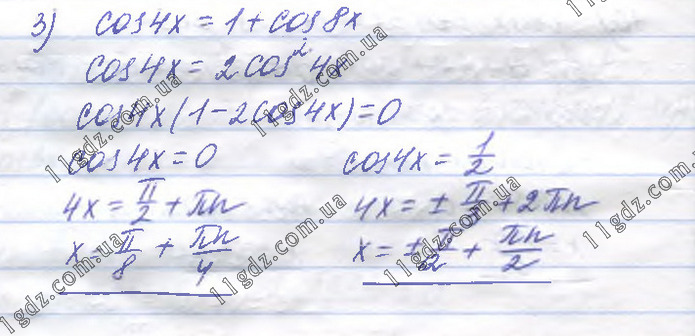 3) cos4x = 1 + cos8x
cos4x = 2cos²4x
cos4x(1 - 2cos4x) = 0
cos4x = 0 cos4x = 1/2
4x = π/2 + πn 4x = ± π/ + 2πn
x = π/8 + πn/4 x = ± π/12 + πn/2
11gdz.com.ua
11gdz.com.ua
11gdz.com.ua
11gdz.com.ua
11gdz.com.ua
11gdz.com.ua